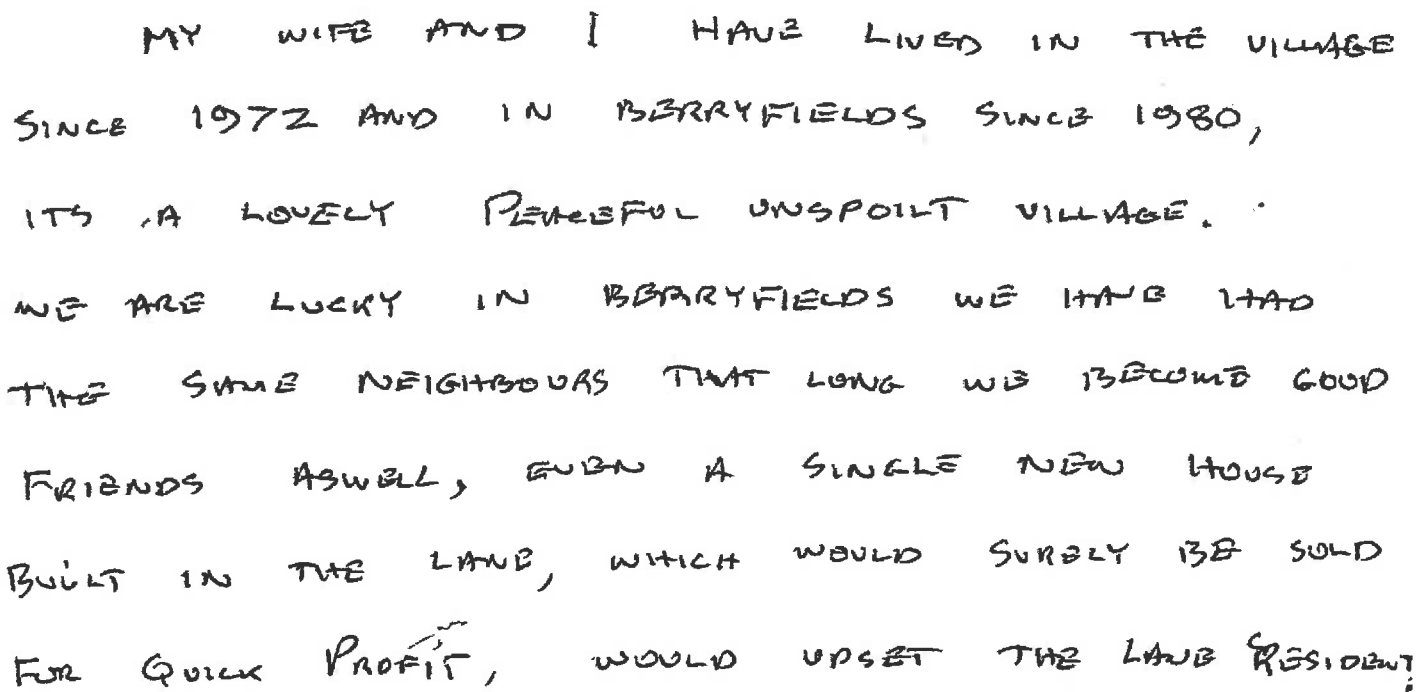 MY WIFE AND I HAVE LIVED IN THE VILLAGE
SINCE 1972 AND IN BERRYFIELDS SINCE 1980,
ITS A LOVELY PEACEFUL UNSPOILT VILLAGE.
WE ARE LUCKY IN BERRYFIELDS WE HAVE HAD
THE SAME NEIGHBOURS THAT LONG WE BECOME GOOD
FRIENDS ASWELL, EVEN A SINGLE NEW HOUSE
BUILT IN THE LANE, WHICH WOULD SURELY BE SOLD
FOR QUICK PROFIT, WOULD UPSET THE LANE RESIDENT